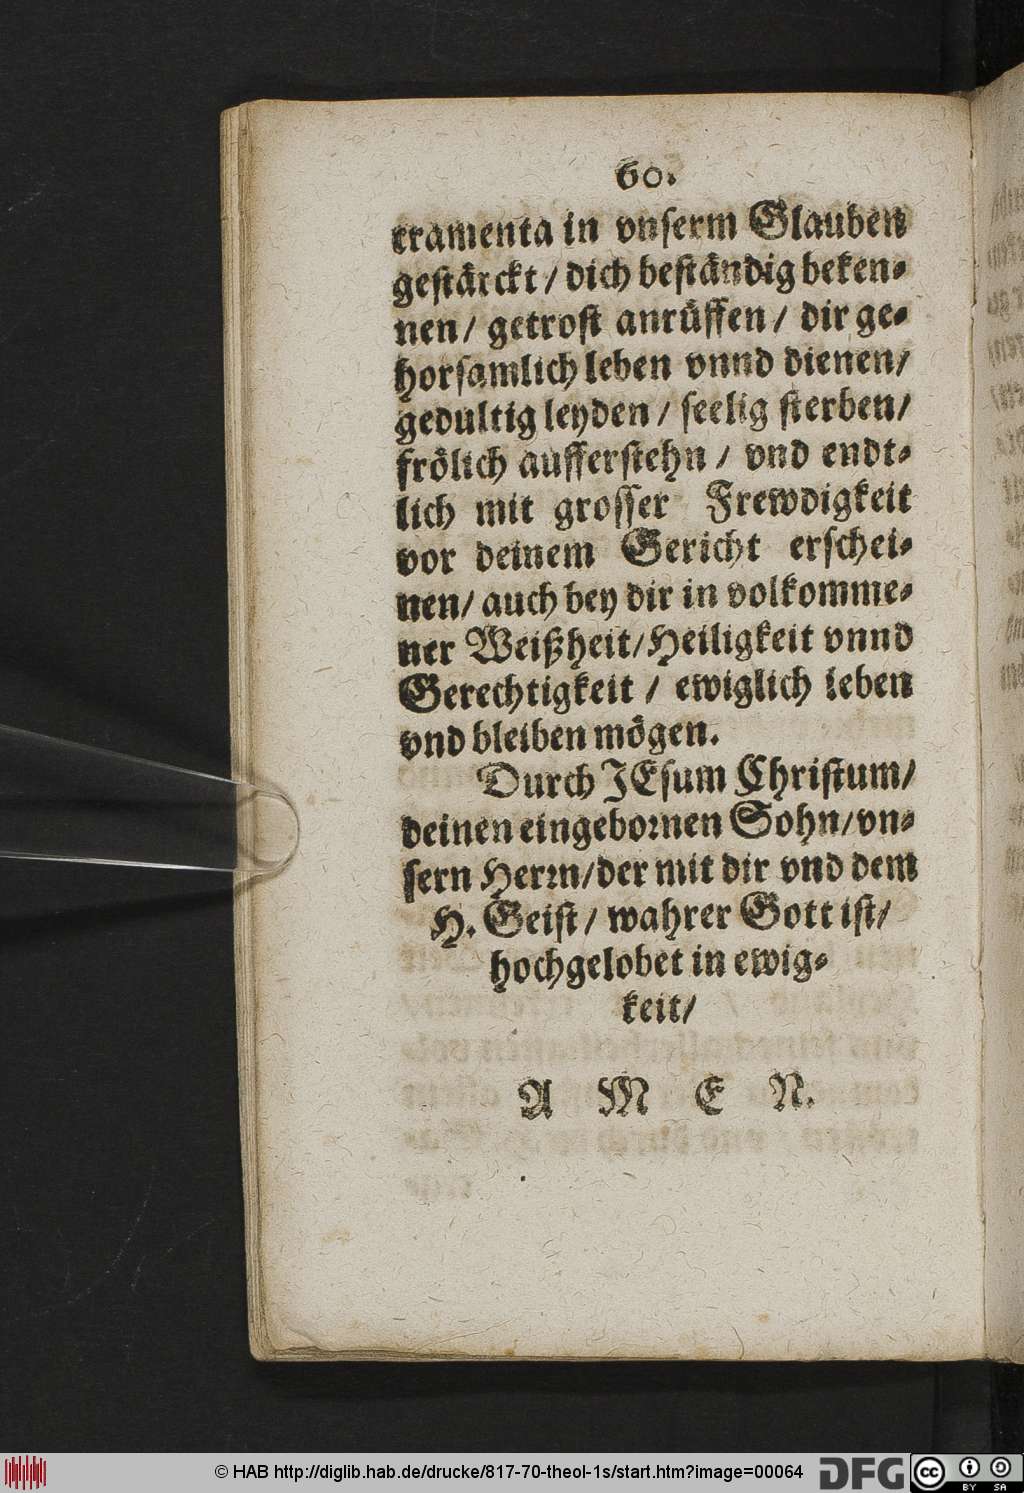 60.
cramenta in vnserm Glauben
gestärckt / dich beständig beken-
nen / getrost anrüffen / dir ge-
horsamlich leben vnnd dienen /
gedultig leyden / seelig sterben /
frölich aufferstehn / vnd endt-
lich mit grosser Frewdigkeit
vor deinem Gericht erschei-
nen / auch bey dir in volkomme-
ner Weißheit / Heiligkeit vnnd
Gerechtigkeit / ewiglich leben
vnd bleiben mögen.
Durch JEsum Christum /
deinen eingebornen Sohn / vn-
sern Herrn / der mit dir vnd dem
H. Geist / wahrer Gott ist /
hochgelobet in ewig-
keit /
A M E N.
© HAB http://diglib.hab.de/drucke/817-70-theol-1s/start.htm?image=00064
DFG
cc BY SA